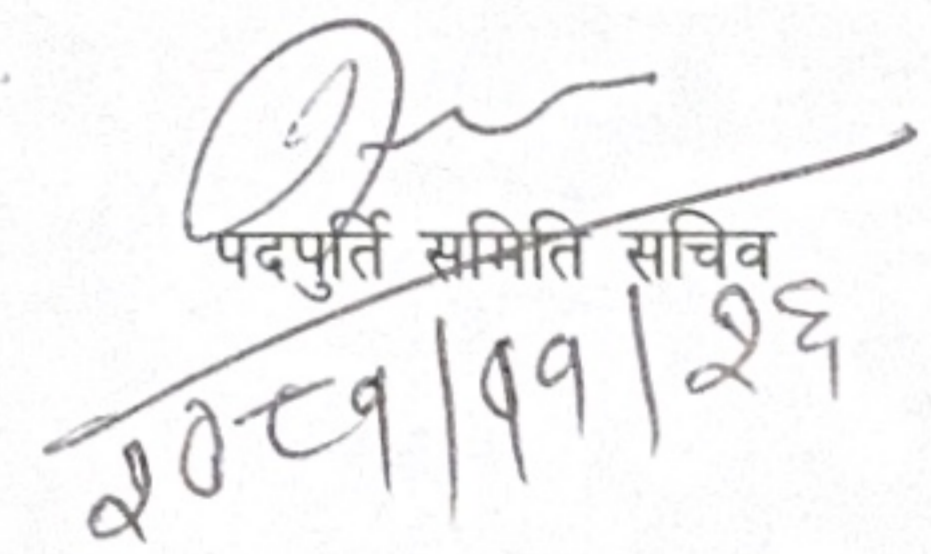 पदपुर्ति समिति सचिव
२०८१/११/२६